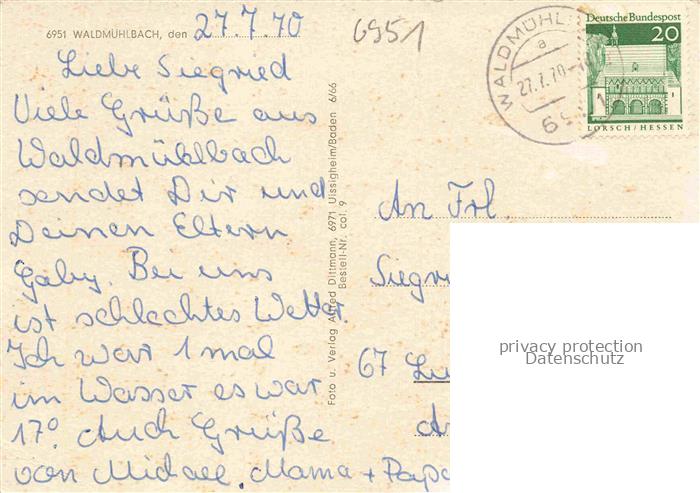 6951 WALDMÜHLBACH, den 27.7.70
6951
Liebe Siegried
Viele Grüße aus
Waldmühlbach
sendet Dir und
Deinen Eltern
Gaby. Bei uns
ist schlechtes Wetter.
Ich war 1 mal
im Wasser es war
17° Auch Grüße
von Michael, Mama + Papa
Foto u. Verlag Alfred Dittmann, 6971 Uissigheim/Baden 6/66
Bestell-Nr. col. 9
WALDMÜHL
a
27.7.70
69
Deutsche Bundespost
20
LORSCH/HESSEN
An Frl.
Siegri
67 Lu
privacy protection
Datenschutz